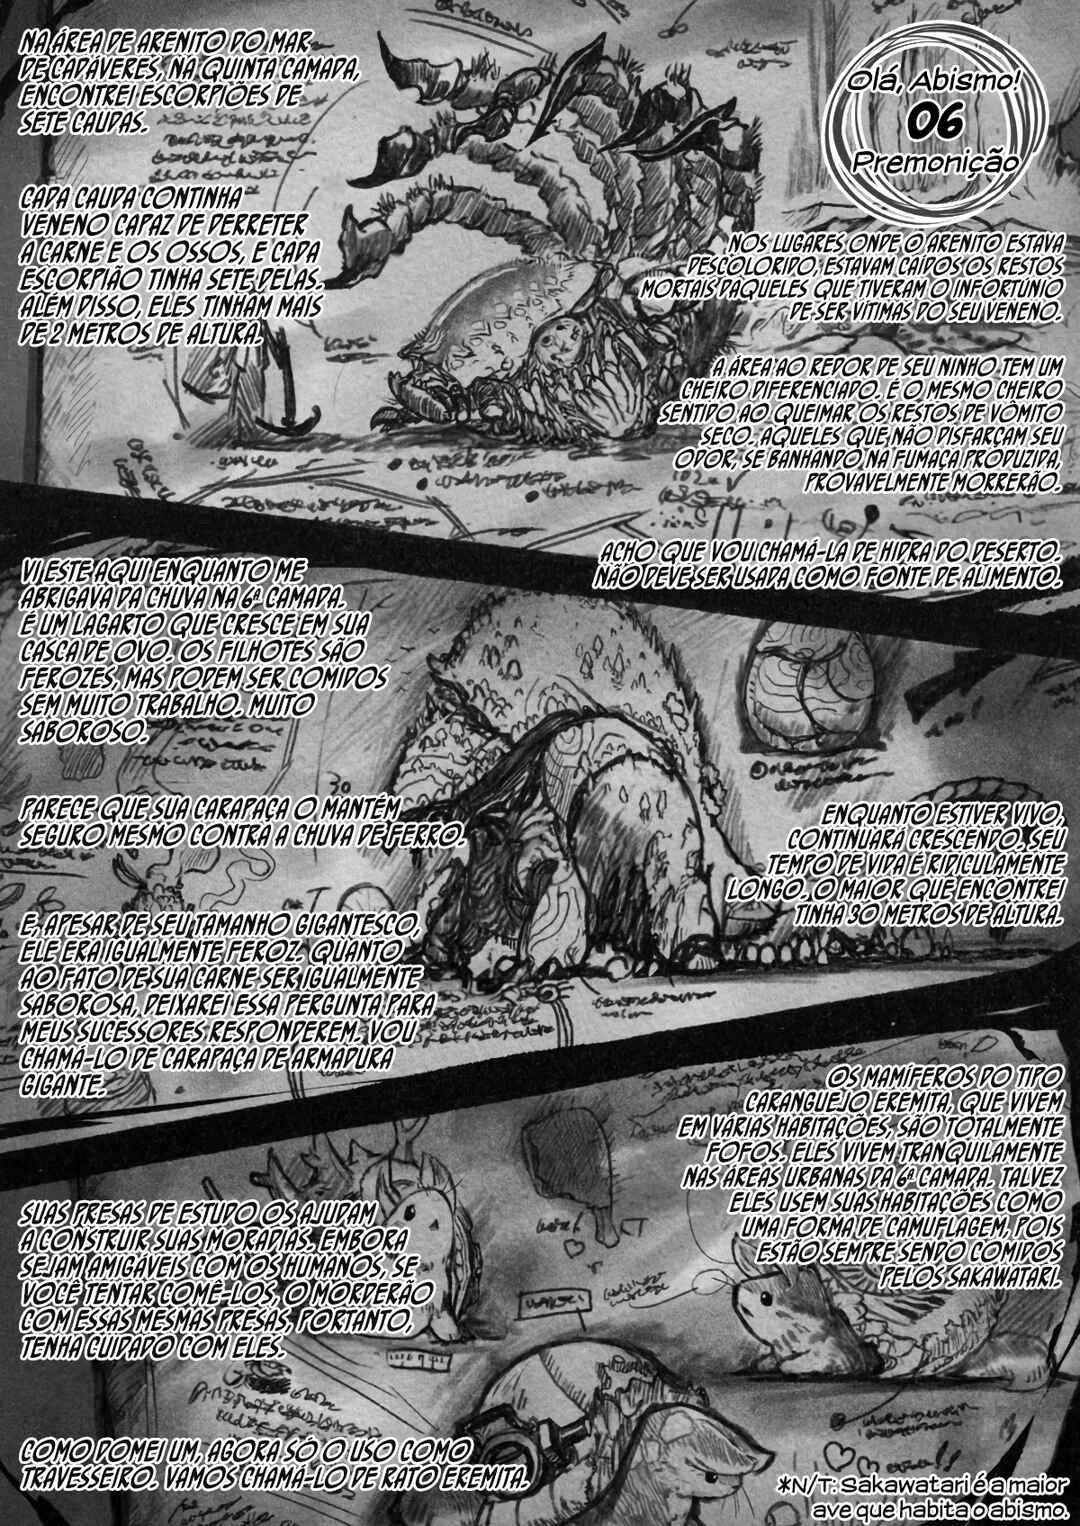 NA ÁREA DE ARENITO DO MAR
DE CADÁVERES, NA QUINTA CAMADA,
ENCONTREI ESCORPIÕES DE
SETE CAUDAS.
Olá, Abismo!
06
Premonição
CADA CAUDA CONTINHA
VENENO CAPAZ DE DERRETER
A CARNE E OS OSSOS, E CADA
ESCORPIÃO TINHA SETE DELAS.
ALÉM DISSO, ELES TINHAM MAIS
DE 2 METROS DE ALTURA.
NOS LUGARES ONDE O ARENITO ESTAVA
DESCOLORIDO, ESTAVAM CAÍDOS OS RESTOS
MORTAIS DAQUELES QUE TIVERAM O INFORTÚNIO
DE SER VÍTIMAS DO SEU VENENO.
A ÁREA AO REDOR DE SEU NINHO TEM UM
CHEIRO DIFERENCIADO. É O MESMO CHEIRO
SENTIDO AO QUEIMAR OS RESTOS DE VÔMITO
SECO. AQUELES QUE NÃO DISFARÇAM SEU
ODOR, SE BANHANDO NA FUMAÇA PRODUZIDA,
PROVAVELMENTE MORRERÃO.
ACHO QUE VOU CHAMÁ-LA DE HIDRA DO DESERTO.
NÃO DEVE SER USADA COMO FONTE DE ALIMENTO.
VI ESTE AQUI ENQUANTO ME
ABRIGAVA DA CHUVA NA 6ª CAMADA.
É UM LAGARTO QUE CRESCE EM SUA
CASCA DE OVO. OS FILHOTES SÃO
FEROZES, MAS PODEM SER COMIDOS
SEM MUITO TRABALHO. MUITO
SABOROSO.
PARECE QUE SUA CARAPAÇA O MANTÉM
SEGURO MESMO CONTRA A CHUVA DE FERRO.
ENQUANTO ESTIVER VIVO,
CONTINUARÁ CRESCENDO. SEU
TEMPO DE VIDA É RIDICULAMENTE
LONGO. O MAIOR QUE ENCONTREI
TINHA 30 METROS DE ALTURA.
E, APESAR DE SEU TAMANHO GIGANTESCO,
ELE ERA IGUALMENTE FEROZ. QUANTO
AO FATO DE SUA CARNE SER IGUALMENTE
SABOROSA, DEIXAREI ESSA PERGUNTA PARA
MEUS SUCESSORES RESPONDEREM. VOU
CHAMÁ-LO DE CARAPAÇA DE ARMADURA
GIGANTE.
OS MAMÍFEROS DO TIPO
CARANGUEJO EREMITA, QUE VIVEM
EM VÁRIAS HABITAÇÕES, SÃO TOTALMENTE
FOFOS. ELES VIVEM TRANQUILAMENTE
NAS ÁREAS URBANAS DA 6ª CAMADA. TALVEZ
ELES USEM SUAS HABITAÇÕES COMO
UMA FORMA DE CAMUFLAGEM, POIS
ESTÃO SEMPRE SENDO COMIDOS
PELOS SAKAWATARI.
SUAS PRESAS DE ESTUDO OS AJUDAM
A CONSTRUIR SUAS MORADIAS. EMBORA
SEJAM AMIGÁVEIS COM OS HUMANOS, SE
VOCÊ TENTAR COMÊ-LOS, O MORDERÃO
COM ESSAS MESMAS PRESAS. PORTANTO,
TENHA CUIDADO COM ELES.
COMO DOMEI UM, AGORA SÓ O USO COMO
TRAVESSEIRO. VAMOS CHAMÁ-LO DE RATO EREMITA.
*N/T: Sakawatari é a maior
ave que habita o abismo.